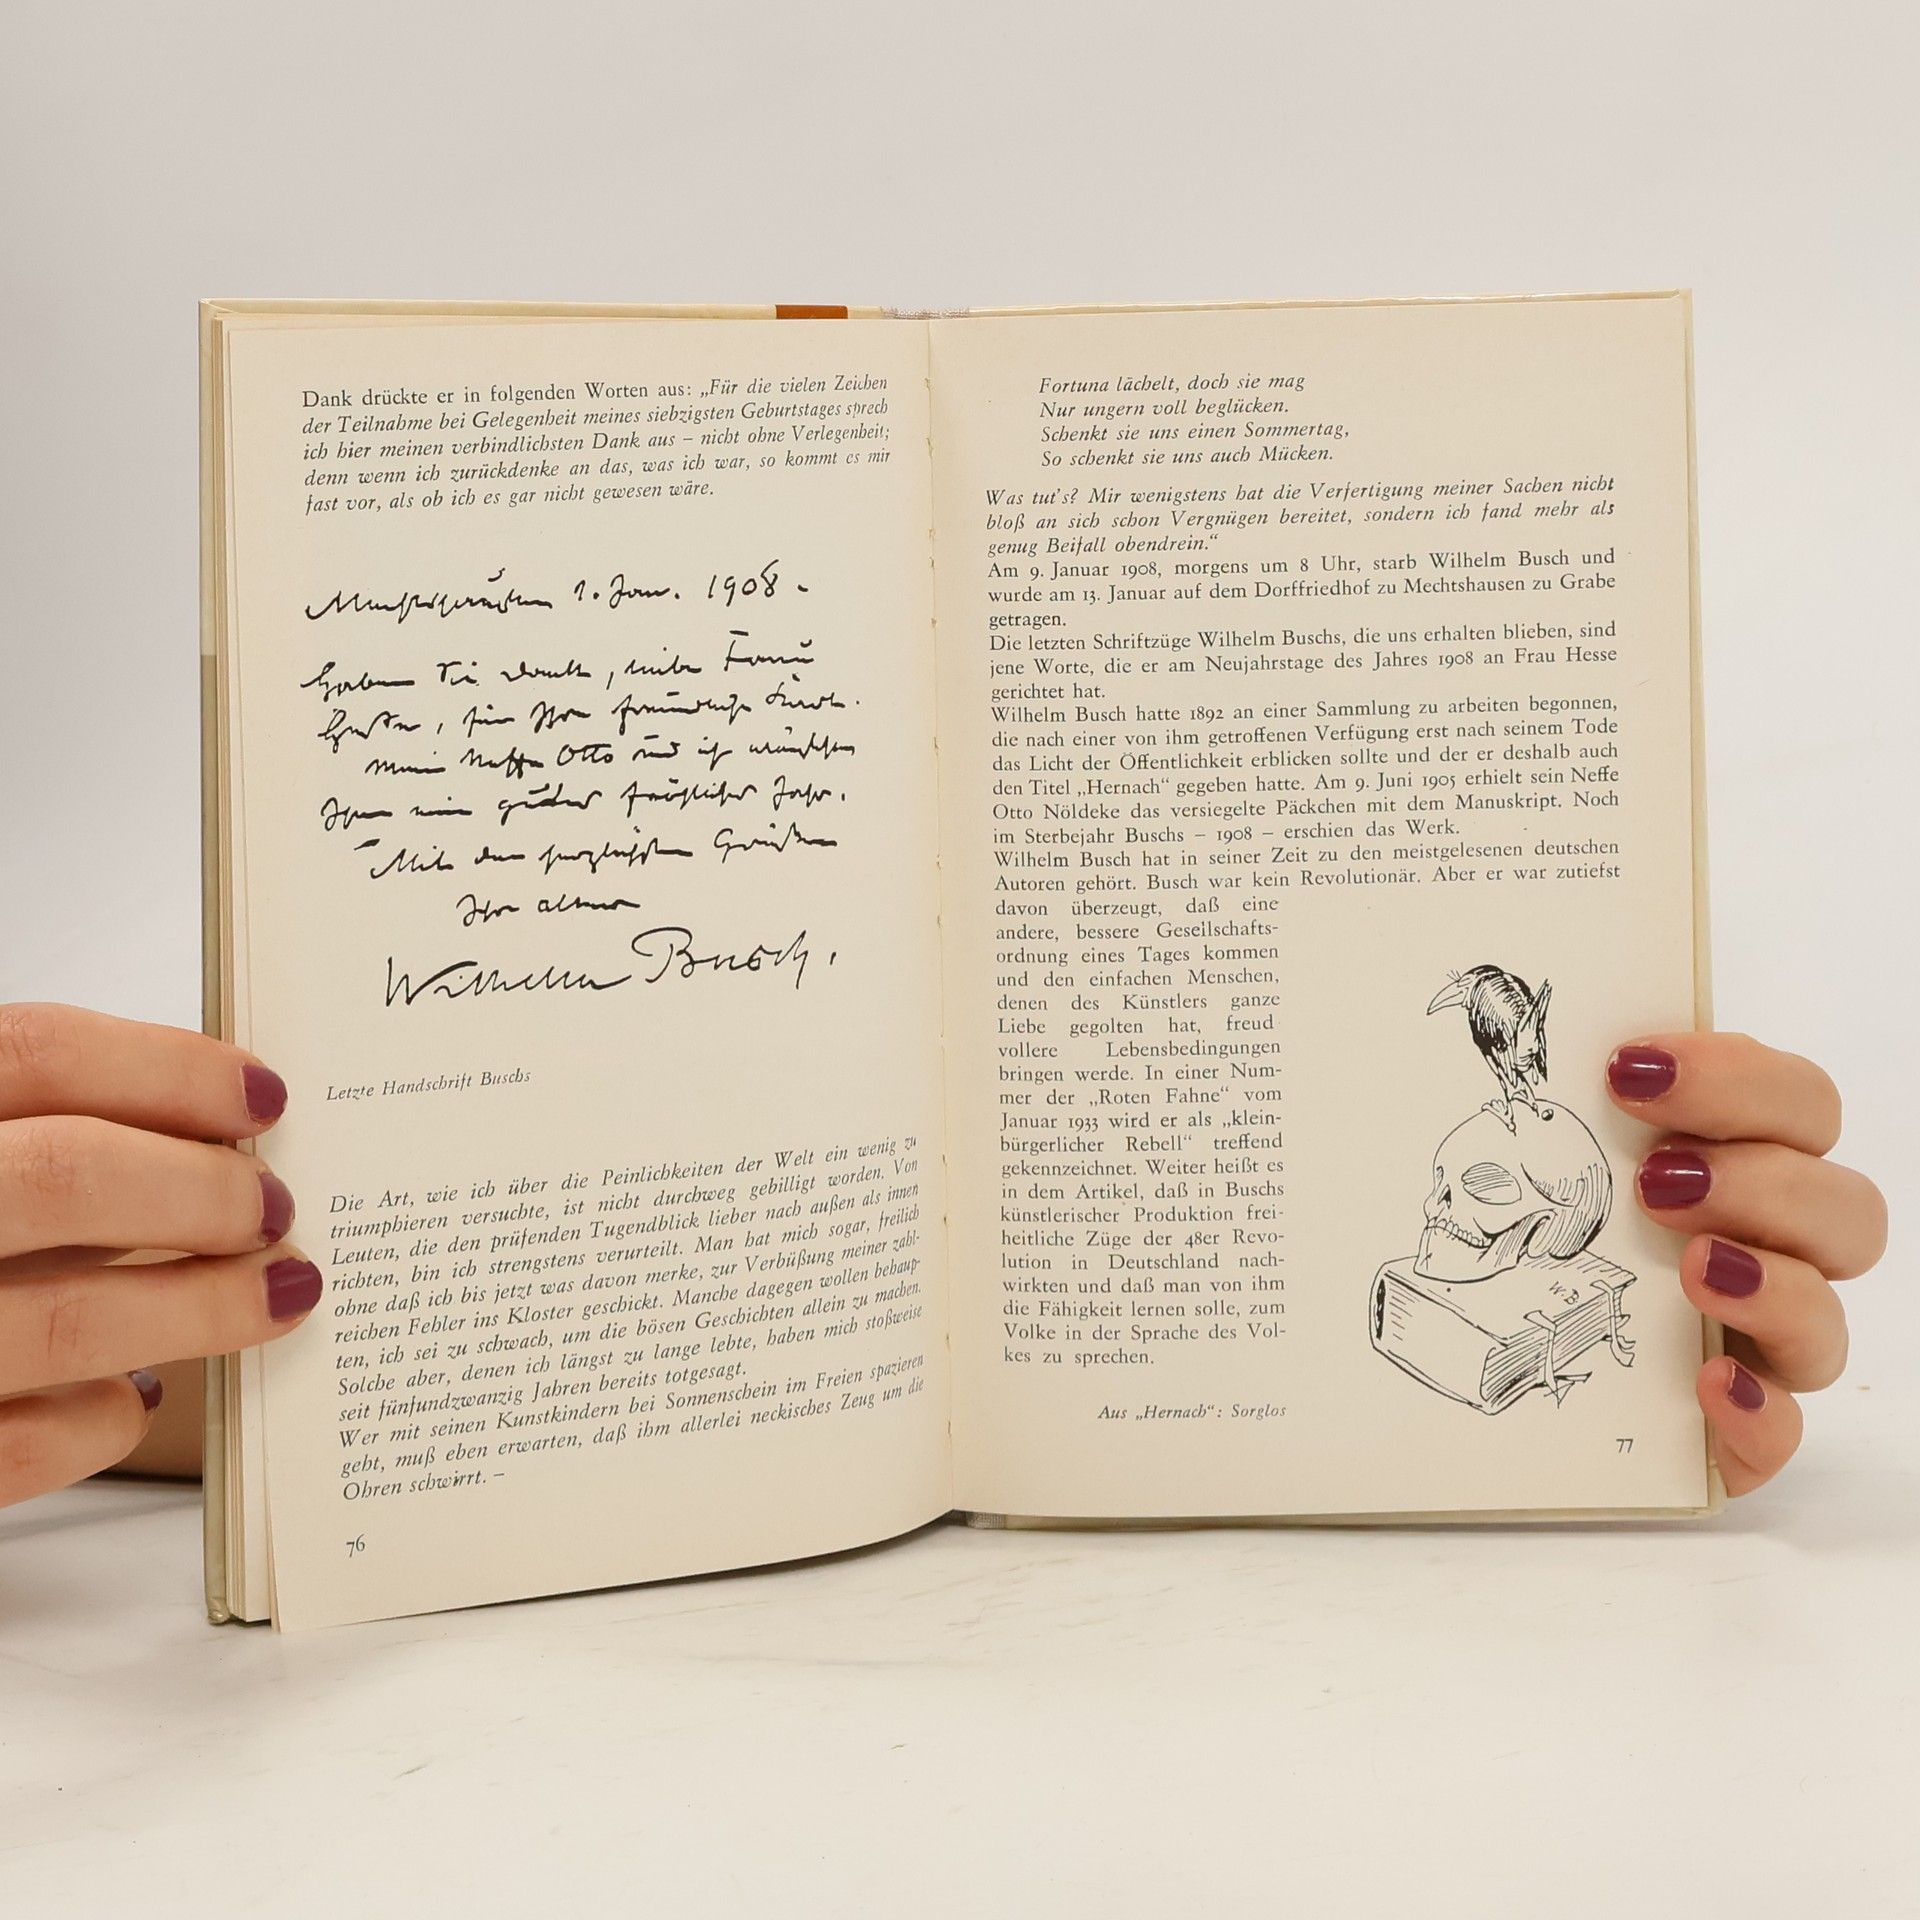 Dank drückte er in folgenden Worten aus: „Für die vielen Zeichen
der Teilnahme bei Gelegenheit meines siebzigsten Geburtstages sprech
ich hier meinen verbindlichsten Dank aus – nicht ohne Verlegenheit;
denn wenn ich zurückdenke an das, was ich war, so kommt es mir
fast vor, als ob ich es gar nicht gewesen wäre.
Mechtshausen 1. Jan. 1908.
Haben Sie Dank, liebe Frau
Hesse, für Ihre freundliche Karte.
Mein Neffe Otto und ich wünschen
Ihnen ein gutes fröhliches Jahr.
Mit den herzlichsten Grüßen
Ihr alter
Wilhelm Busch.
Letzte Handschrift Buschs
Die Art, wie ich über die Peinlichkeiten der Welt ein wenig zu
triumphieren versuchte, ist nicht durchweg gebilligt worden. Von
Leuten, die den prüfenden Tugendblick lieber nach außen als innen
richten, bin ich strengstens verurteilt. Man hat mich sogar, freilich
ohne daß ich bis jetzt was davon merke, zur Verbüßung meiner zahl-
reichen Fehler ins Kloster geschickt. Manche dagegen wollen behaup-
ten, ich sei zu schwach, um die bösen Geschichten allein zu machen.
Solche aber, denen ich längst zu lange lebte, haben mich stoßweise
seit fünfundzwanzig Jahren bereits totgesagt.
Wer mit seinen Kunstkindern bei Sonnenschein im Freien spazieren
geht, muß eben erwarten, daß ihm allerlei neckisches Zeug um die
Ohren schwirrt. –
76
Fortuna lächelt, doch sie mag
Nur ungern voll beglücken.
Schenkt sie uns einen Sommertag,
So schenkt sie uns auch Mücken.
Was tut's? Mir wenigstens hat die Verfertigung meiner Sachen nicht
bloß an sich schon Vergnügen bereitet, sondern ich fand mehr als
genug Beifall obendrein.“
Am 9. Januar 1908, morgens um 8 Uhr, starb Wilhelm Busch und
wurde am 13. Januar auf dem Dorffriedhof zu Mechtshausen zu Grabe
getragen.
Die letzten Schriftzüge Wilhelm Buschs, die uns erhalten blieben, sind
jene Worte, die er am Neujahrstage des Jahres 1908 an Frau Hesse
gerichtet hat.
Wilhelm Busch hatte 1892 an einer Sammlung zu arbeiten begonnen,
die nach einer von ihm getroffenen Verfügung erst nach seinem Tode
das Licht der Öffentlichkeit erblicken sollte und der er deshalb auch
den Titel „Hernach“ gegeben hatte. Am 9. Juni 1905 erhielt sein Neffe
Otto Nöldeke das versiegelte Päckchen mit dem Manuskript. Noch
im Sterbejahr Buschs – 1908 – erschien das Werk.
Wilhelm Busch hat in seiner Zeit zu den meistgelesenen deutschen
Autoren gehört. Busch war kein Revolutionär. Aber er war zutiefst
davon überzeugt, daß eine
andere, bessere Gesellschafts-
ordnung eines Tages kommen
und den einfachen Menschen,
denen des Künstlers ganze
Liebe gegolten hat, freud
vollere Lebensbedingungen
bringen werde. In einer Num-
mer der „Roten Fahne“ vom
Januar 1933 wird er als „klein-
bürgerlicher Rebell“ treffend
gekennzeichnet. Weiter heißt es
in dem Artikel, daß in Buschs
künstlerischer Produktion frei-
heitliche Züge der 48er Revo-
lution in Deutschland nach-
wirkten und daß man von ihm
die Fähigkeit lernen solle, zum
Volke in der Sprache des Vol-
kes zu sprechen.
W.B.
Aus „Hernach“: Sorglos
77